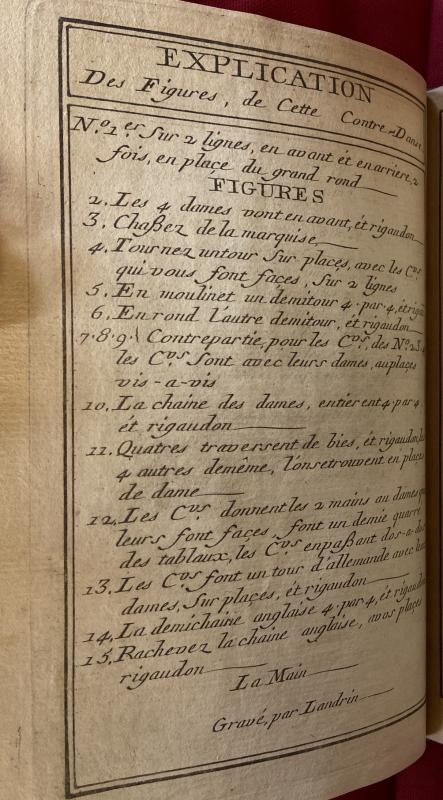 EXPLICATION
Des Figures, de Cette Contre-Danse
N.º 1.er Sur 2 lignes, en avant ét en arriere, 2
fois, en place du grand rond
FIGURES
2. Les 4 dames vont en avant, ét rigaudon
3. Chaßez de la marquise,
4. Tournez un tour Sur places, avec les C.vs
qui vous font façes, Sur 2 lignes
5. En moulinet un demitour 4 par 4, ét
6. En rond l'autre demitour, ét rigaudon
7. 8. 9. Contrepartie, pour les C.vs, des Nº 2. 3. 4
les C.vs Sont avec leurs dames, au plaçes
vis-a-vis
10. La chaine des dames, entierent 4 par 4
ét rigaudon
11. Quatres traversent de bies, ét rigaudon,
4 autres deméme, l'on se trouvent en plaçes
de dame
12. Les C.vs donnent les 2 mains au dames
leurs font façes, font un demie quarré
des tablaux, les C.vs en paßant dos-a-dos
13. Les C.vs font un tour d'allemande avec
dames, Sur plaçes, ét rigaudon
14. La demichaine anglaise 4 par 4, ét rigaudon
15. Rachevez la chaine anglaise, a vos plaçes
rigaudon
La Main
Gravé, par Landrin